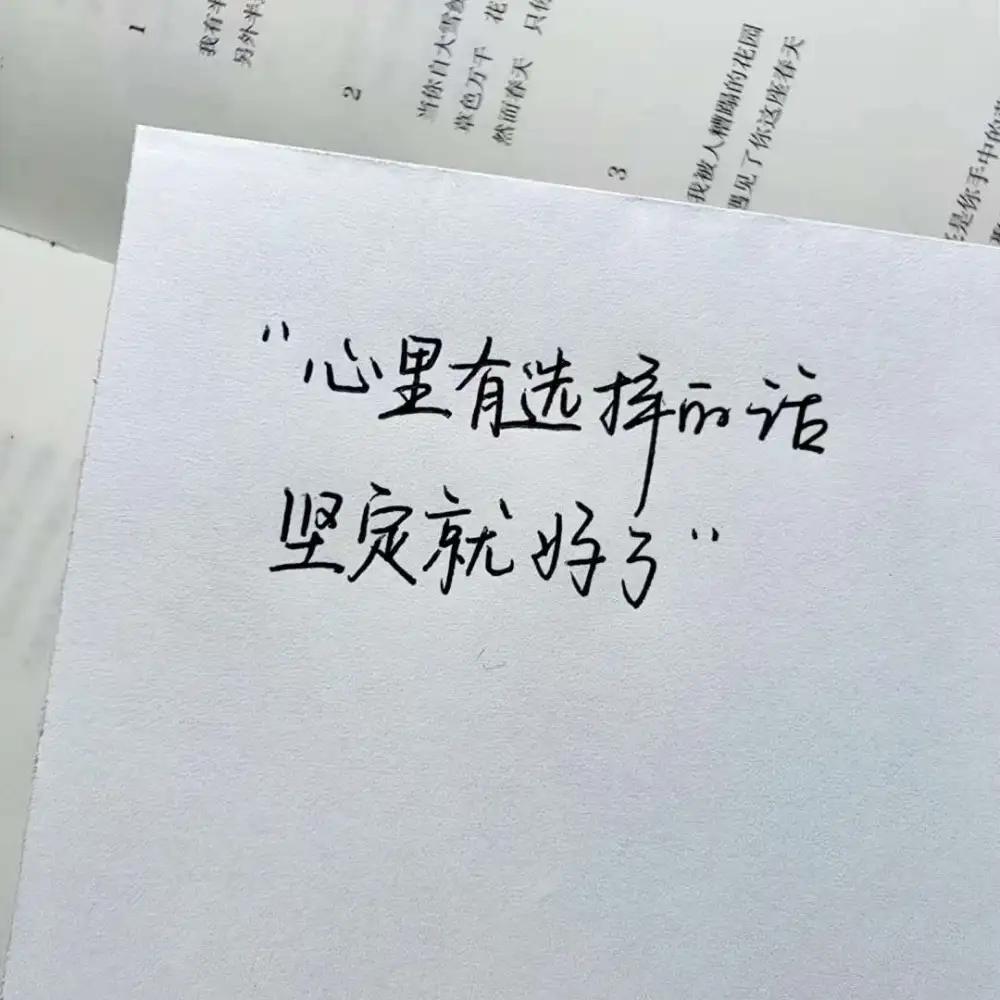 1
我有半
另外半
2
当你自大雪
草色万千 花
然而春天 只
3
我被人糟蹋的花园
遇见了你这座春天
是你手中的
“心里有选择的话
坚定就好了”